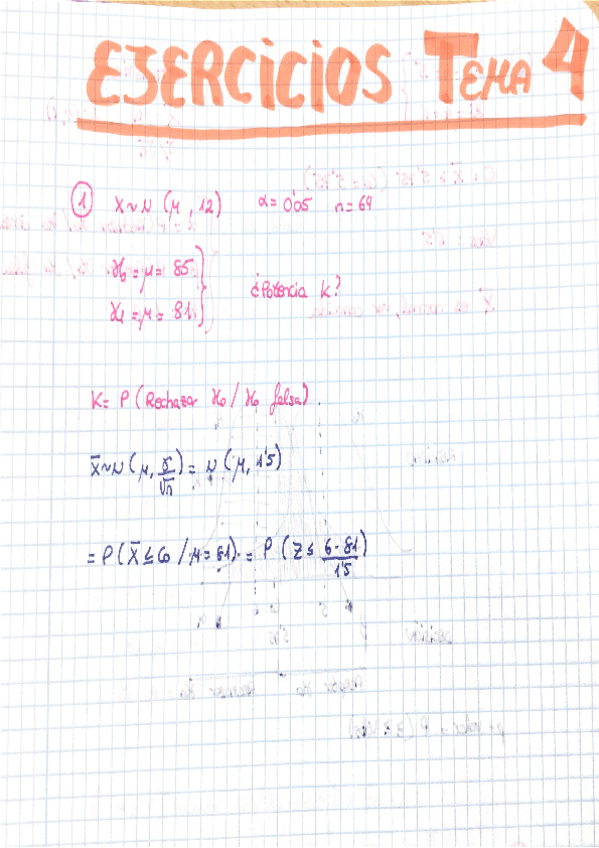 EJERCICIOS TEMA 4
① X~N (μ, 12) α = 0'05 n = 64
H₀ = μ = 85
H₁ = μ = 81
¿Potencia K?
K = P (Rechazar H₀ / H₀ falsa)
X̄~N (μ, σ/√n) = N (μ, 1'5)
= P (X̄ ≤ C₀ / μ = 81) = P (Z ≤ (6-81)/1'5)